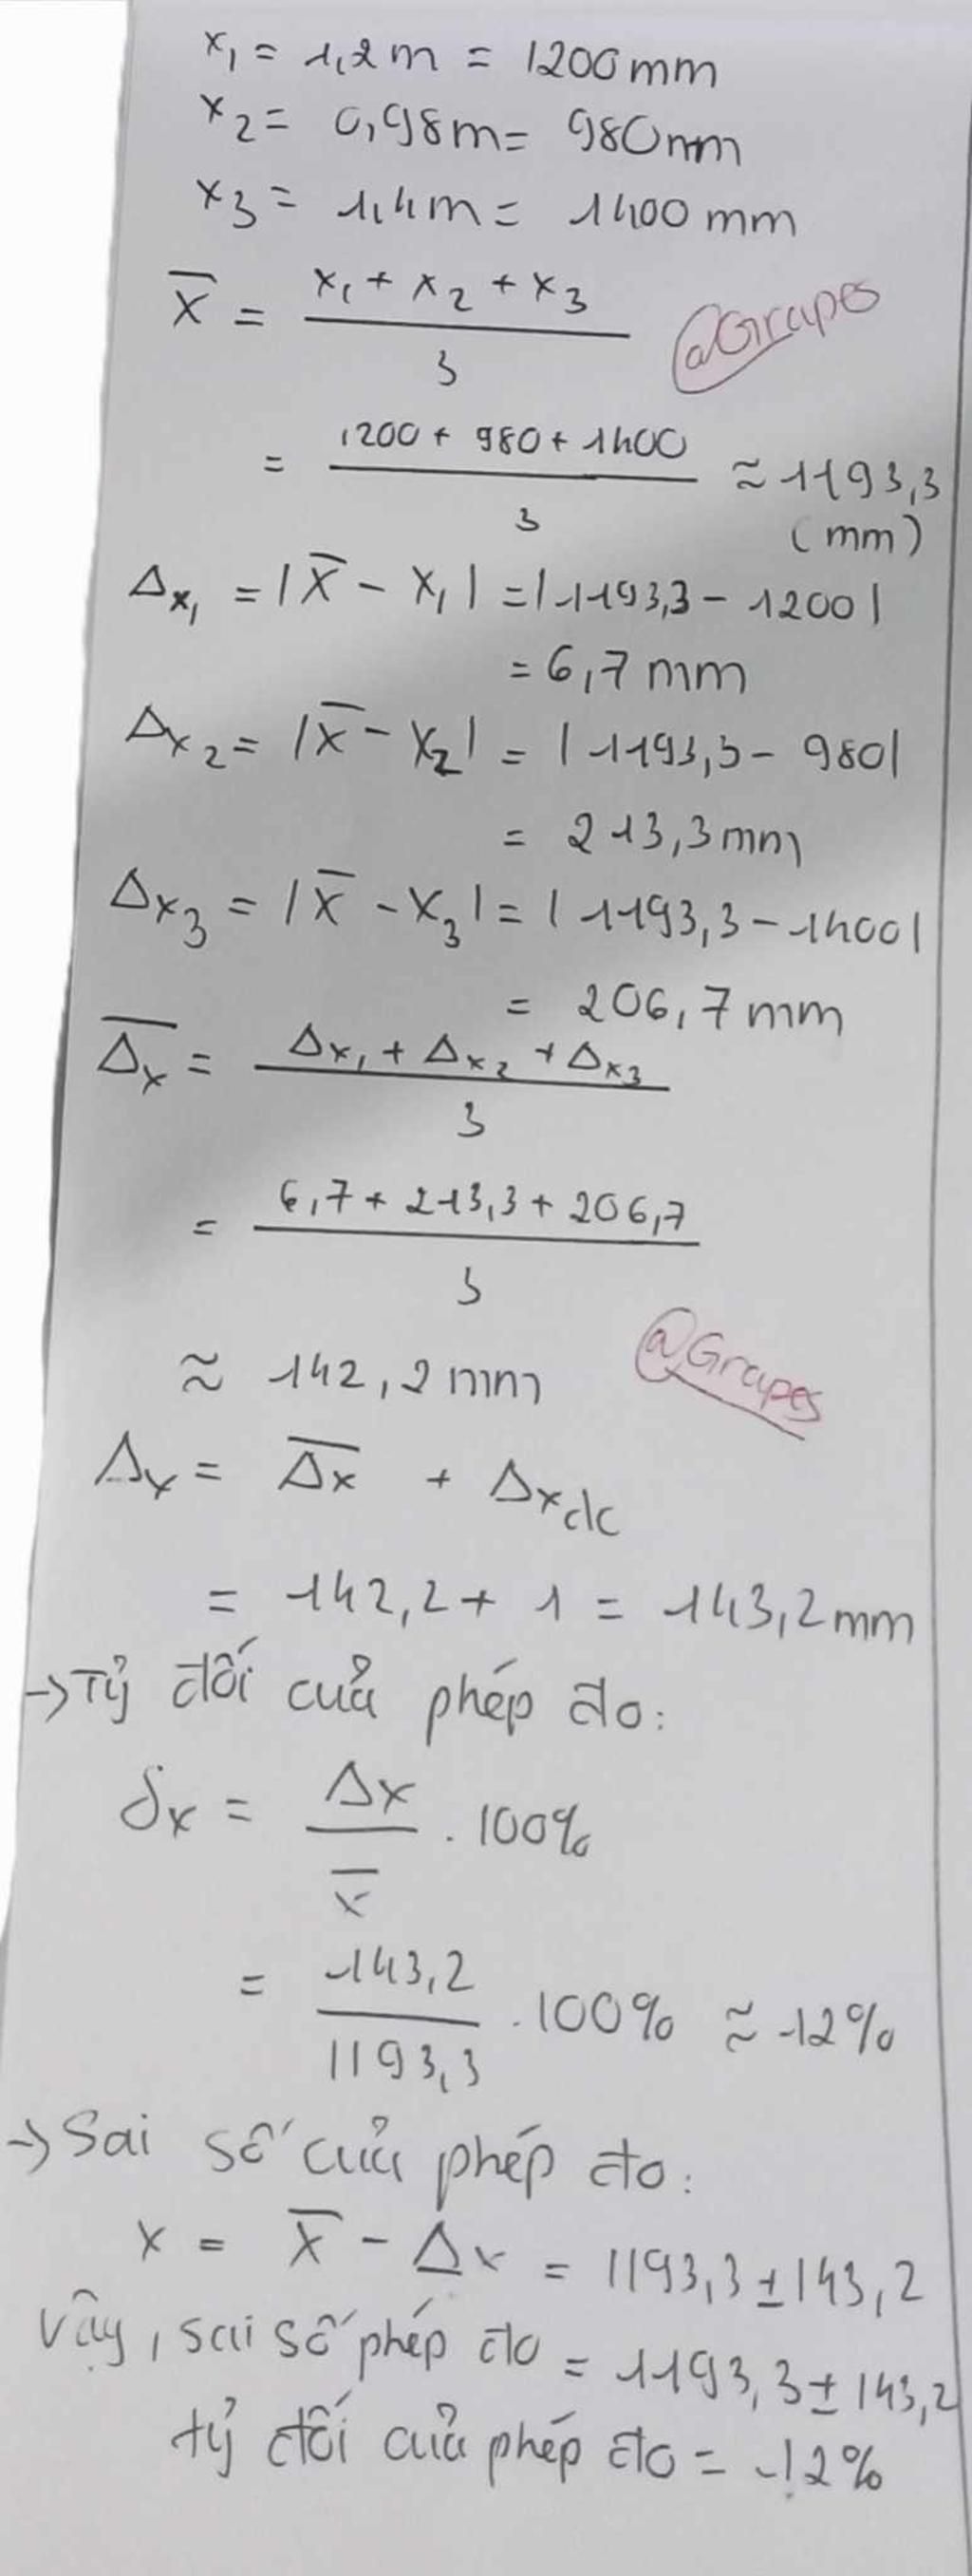 x₁ = 1,2m = 1200mm
x₂ = 0,98m = 980mm
x₃ = 1,4m = 1400mm
x̄ = (x₁ + x₂ + x₃) / 3
@Grapes
= (1200 + 980 + 1400) / 3 ≈ 1193,3
(mm)
Δx₁ = |x̄ - x₁| = |1193,3 - 1200|
= 6,7mm
Δx₂ = |x̄ - x₂| = |1193,3 - 980|
= 213,3mm
Δx₃ = |x̄ - x₃| = |1193,3 - 1400|
= 206,7mm
\overline{Δx} = (Δx₁ + Δx₂ + Δx₃) / 3
= (6,7 + 213,3 + 206,7) / 3
@Grapes
≈ 142,2mm
Δx = \overline{Δx} + Δx_{dc}
= 142,2 + 1 = 143,2mm
→ Tỷ đối của phép đo:
δx = Δx / x̄ . 100%
= 143,2 / 1193,3 . 100% ≈ 12%
→ Sai số của phép đo:
x = x̄ - Δx = 1193,3 ± 143,2
Vậy, sai số phép đo = 1193,3 ± 143,2
tỷ đối của phép đo = 12%